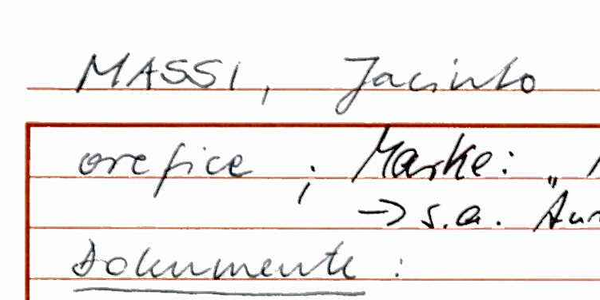 MASSI, Jacinto
orefice ; Marke: „
→ s.a.
Dokumente :